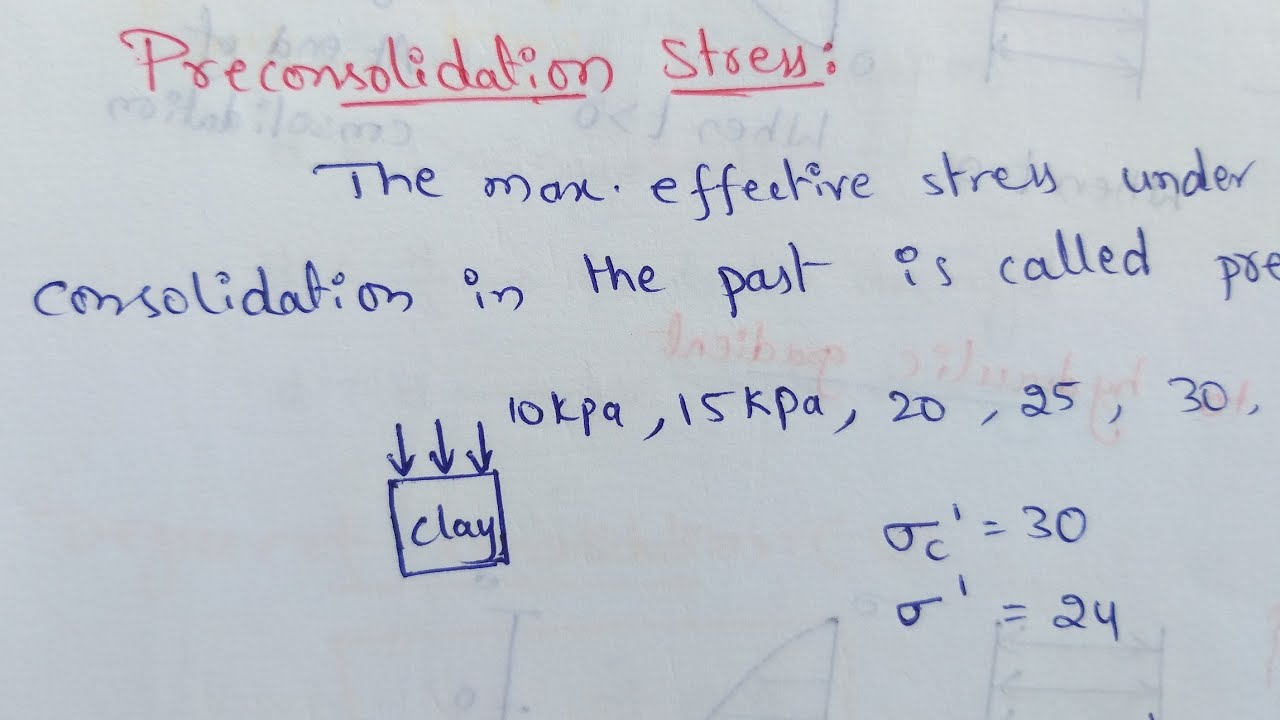 Preconsolidation Stress:
The max. effective stress under
consolidation in the past is called pre
10kpa, 15kpa, 20, 25, 30,
clay
σc' = 30
σ' = 24